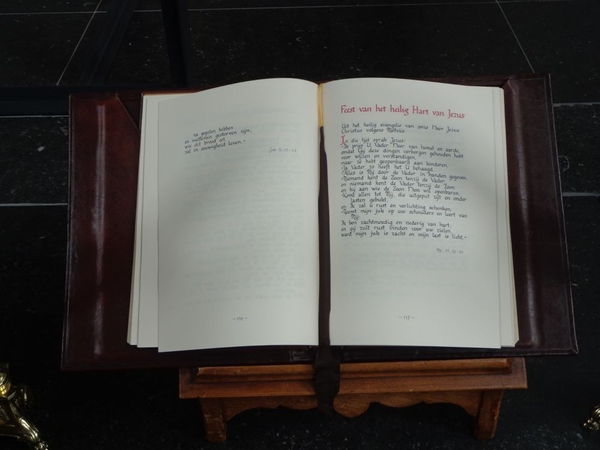 uw vaderen hebben
en niettemin gestorven zijn,
wie dit brood eet
zal in eeuwigheid leven."
Feest van het heilig Hart van Jezus
Uit het heilig evangelie van onze Heer Jezus
Christus volgens Matteüs
In die tijd sprak Jezus:
"Ik prijs U, Vader, Heer van hemel en aarde,
omdat Gij deze dingen verborgen gehouden hebt
voor wijzen en verstandigen,
maar ze hebt geopenbaard aan kinderen.
Ja Vader, zo heeft het U behaagd.
Alles is Mij door de Vader in handen gegeven.
Niemand kent de Zoon tenzij de Vader,
en niemand kent de Vader tenzij de Zoon
en hij aan wie de Zoon Hem wil openbaren.
Komt allen tot Mij, die uitgeput zijt en onder
lasten gebukt,
en Ik zal u rust en verlichting schenken.
Neemt mijn juk op uw schouders en leert van
Mij:
Ik ben zachtmoedig en nederig van hart;
en gij zult rust vinden voor uw zielen,
want mijn juk is zacht en mijn last is licht."